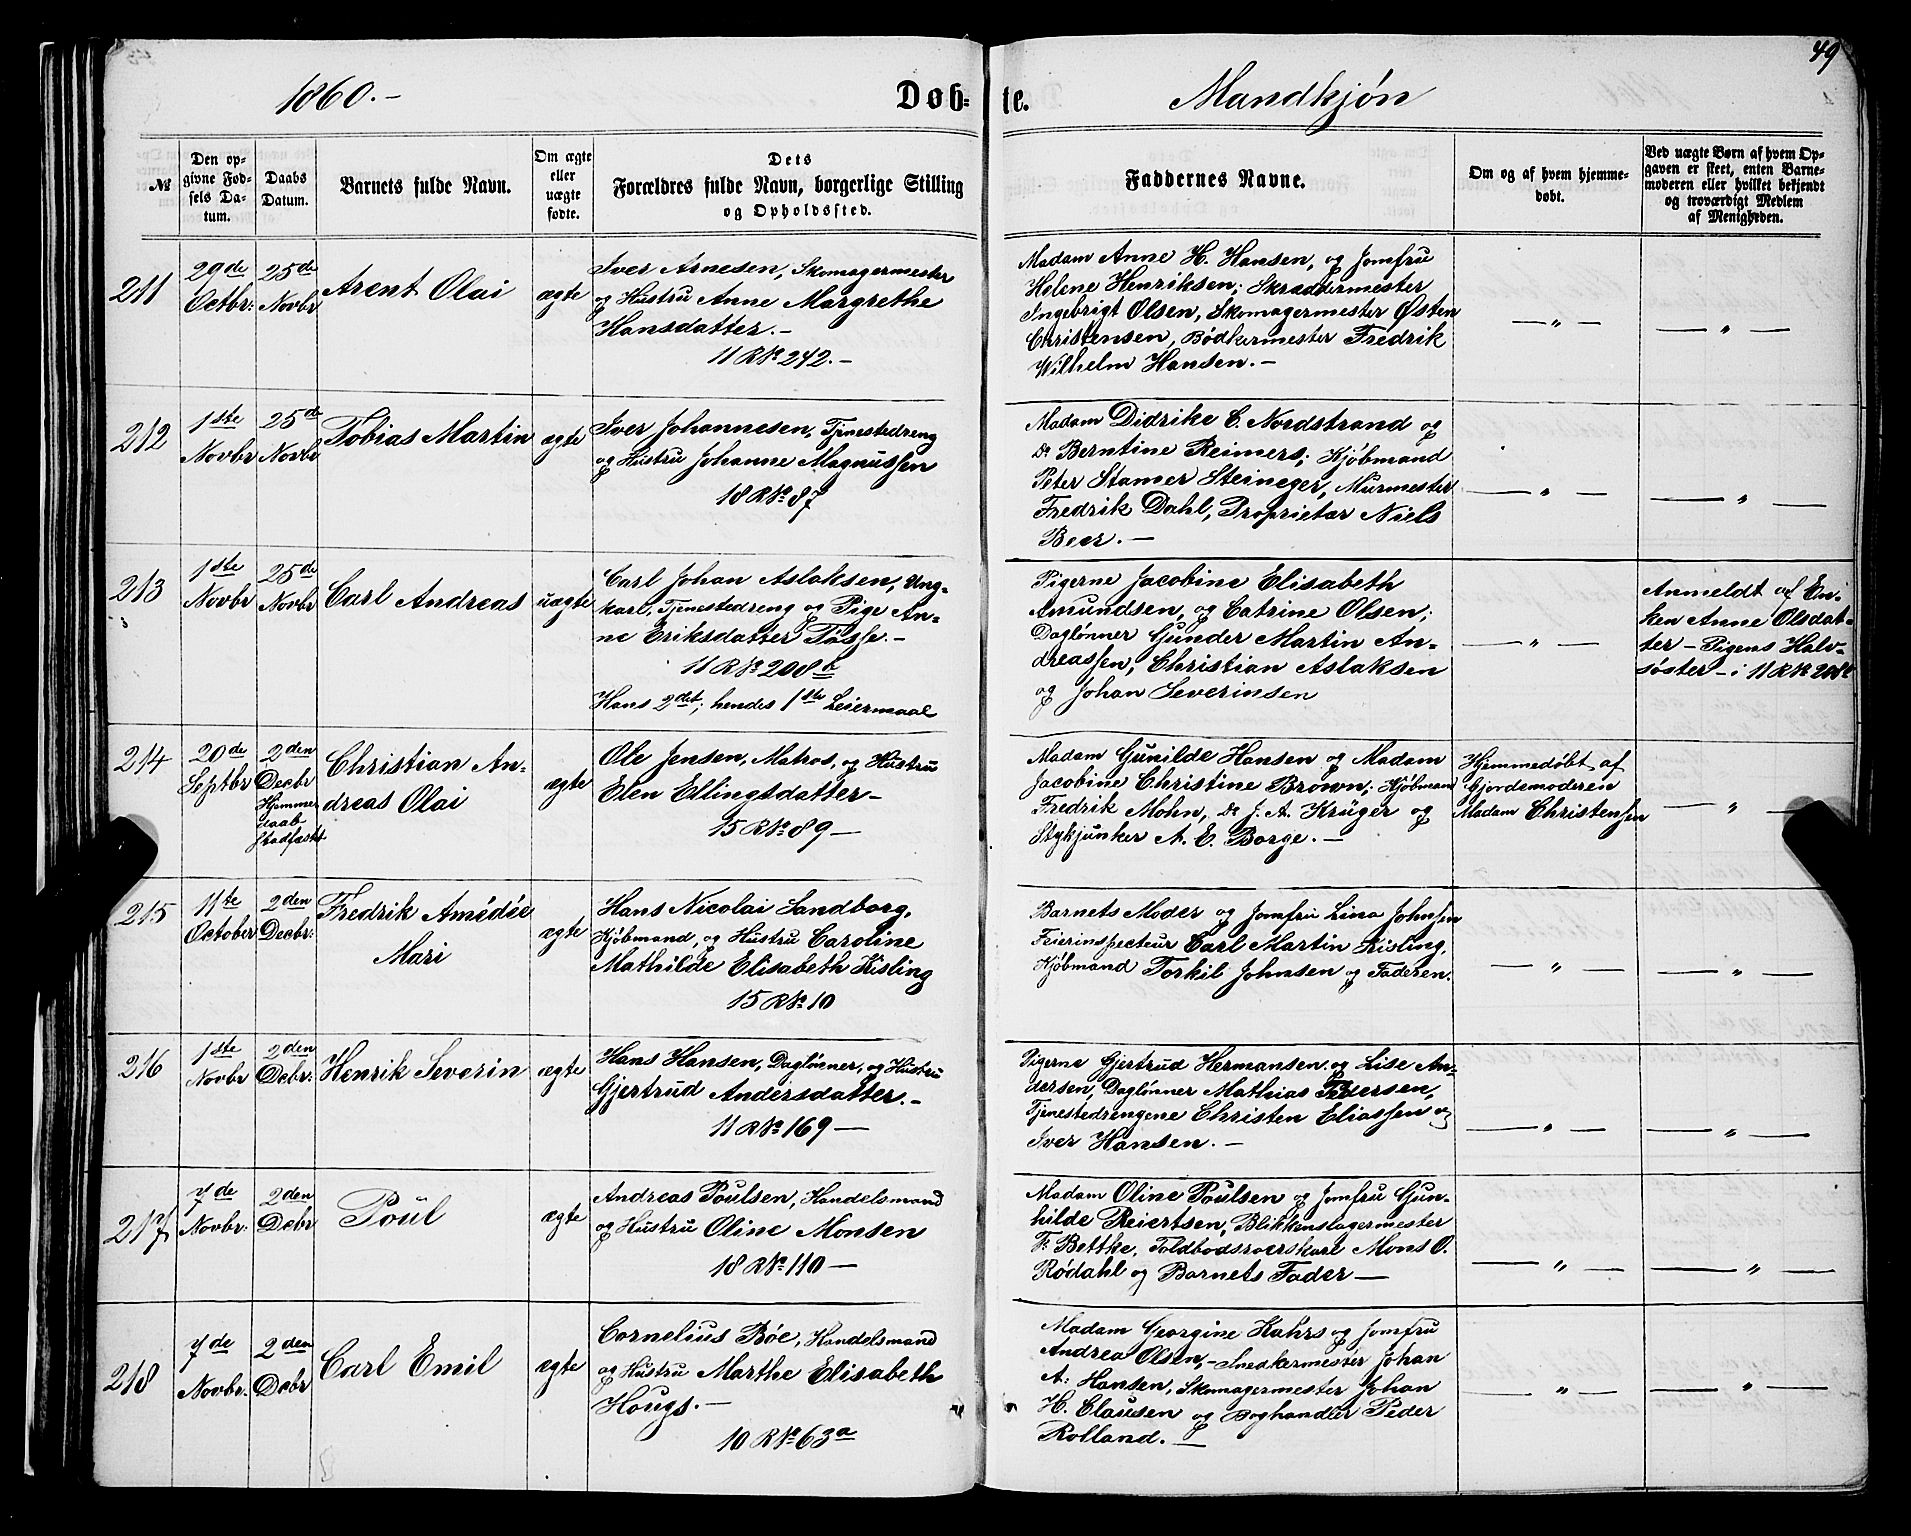 49
1860.-
Døb-
te.
Mandkjøn
№
Den op-
givne Fød-
sels Da-
tum.
Daabs
Datum.
Barnets fulde Navn.
Om ægte
eller
uægte
fødte.
Dets
Forældres fulde Navn, borgerlige Stilling
og Opholdssted.
Faddernes Navne.
Om og af hvem hjemme-
døbt.
Ved uægte Børn af hvem Op-
gaven er skeet, enten Barne-
moderen eller hvilket bekjendt
og troværdigt Medlem
af Menigheden.
211
29de
Octbr:
25de
Novbr
Arent Olai
ægte
Iver Arnesen, Skomagermester
og Hustru Anne Margrethe
Hansdatter.-
11 R № 242.-
Madam Anne H. Hansen, og Jomfru
Helene Henriksen; Skræddermester
Ingebrigt Olsen, Skomagermester Østen
Christensen, Bødkermester Fredrik
Wilhelm Hansen.-
— „ —
— „ —
212
1ste
Novbr
25de
Novbr
Tobias Martin
ægte
Iver Johannesen, Tjenestedreng
og Hustru Johanne Magnussen
18 R № 87
Madam Didrike C. Nordstrand og
Do Berntine Reimers; Kjøbmand
Peter Stamer Steineger, Murmester
Fredrik Dahl, Proprietær Niels
Beer.-
— „ —
— „ —
213
1ste
Novbr
25de
Novbr
Carl Andreas
uægte
Carl Johan Aslaksen, Ung-
karl, Tjenestedreng og Pige An-
ne Eriksdatter Tosse.-
11 R № 208b
Hans 2det; hendes 1ste Leiermaal
Pigerne Jacobine Elisabeth
Amundsen, og Catrine Olsen;
Daglønner Gunder Martin An-
dreassen, Christian Aslaksen
og Johan Severinsen
— „ —
Anmeldt af En-
ken Anne Olsdat-
ter - Pigens Halv-
søster - i 11 R № 208b
214
20de
Septbr
2den
Decbr
Hjemme
daab
stadfæstet
Christian An-
dreas Olai
ægte
Ole Jensen, Matros, og Hustru
Elen Ellingsdatter-
15 R № 89 —
Madam Gunilde Hansen og Madam
Jacobine Christine Brown; Kjøbmand
Fredrik Mohn, Do J. A. Krüger og
Stykjunker A. E. Borge.-
Hjemmedøbt af
Gjordemoderen
Madam Christensen
— „ —
215
11te
October
2den
Decbr:
Fredrik Amédée
Mari
ægte
Hans Nicolai Sandborg,
Kjøbmand, og Hustru Caroline
Mathilde Elisabeth Kisling
15 R № 10
Barnets Moder og Jomfru Lina Johnsen
Feierinspecteur Carl Martin Kisling,
Kjøbmand Torkil Johnsen og Faderen.
— „ —
— „ —
216
1ste
Novbr
2den
Debr:
Henrik Severin
ægte
Hans Hansen, Daglønner, og Hustru
Gjertrud Andersdatter.-
11 R № 169 —
Pigerne Gjertrud Hermansen og Lise An-
dersen, Daglønner Mathias Pedersen,
Tjenestedrengene Christen Eliassen og
Iver Hansen.-
— „ —
— „ —
217
7de
Novbr:
2den
Debr
Poul
ægte
Andreas Poulsen, Handelsmand
og Hustru Oline Monsen
18 R № 110 —
Madam Oline Poulsen og Jomfru Gun-
hilde Reiertsen, Blikkenslagermester
Fr. Bettke, Toldbodsroerskarl Mons O.
Rødahl og Barnets Fader —
— „ —
— „ —
218
7de
Novbr.
2den
Debr
Carl Emil
ægte
Cornelius Bøe, Handelsmand
og Hustru Marthe Elisabeth
Hougs.-
10 R № 63a
Madam Georgine Kahrs og Jomfru
Andrea Olsen,- Snedkermester Johan
A: Hansen, Skomagermester Johan
H. Clausen og Boghandler Peder
Rolland. —
— „ —
— „ —